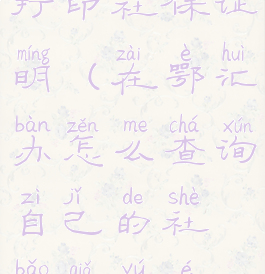 打印社保证
míng zài è huì
明（在鄂汇
bàn zěn me chá xún
办怎么查询
zì jǐ de shè
自己的社
bǎo yú é